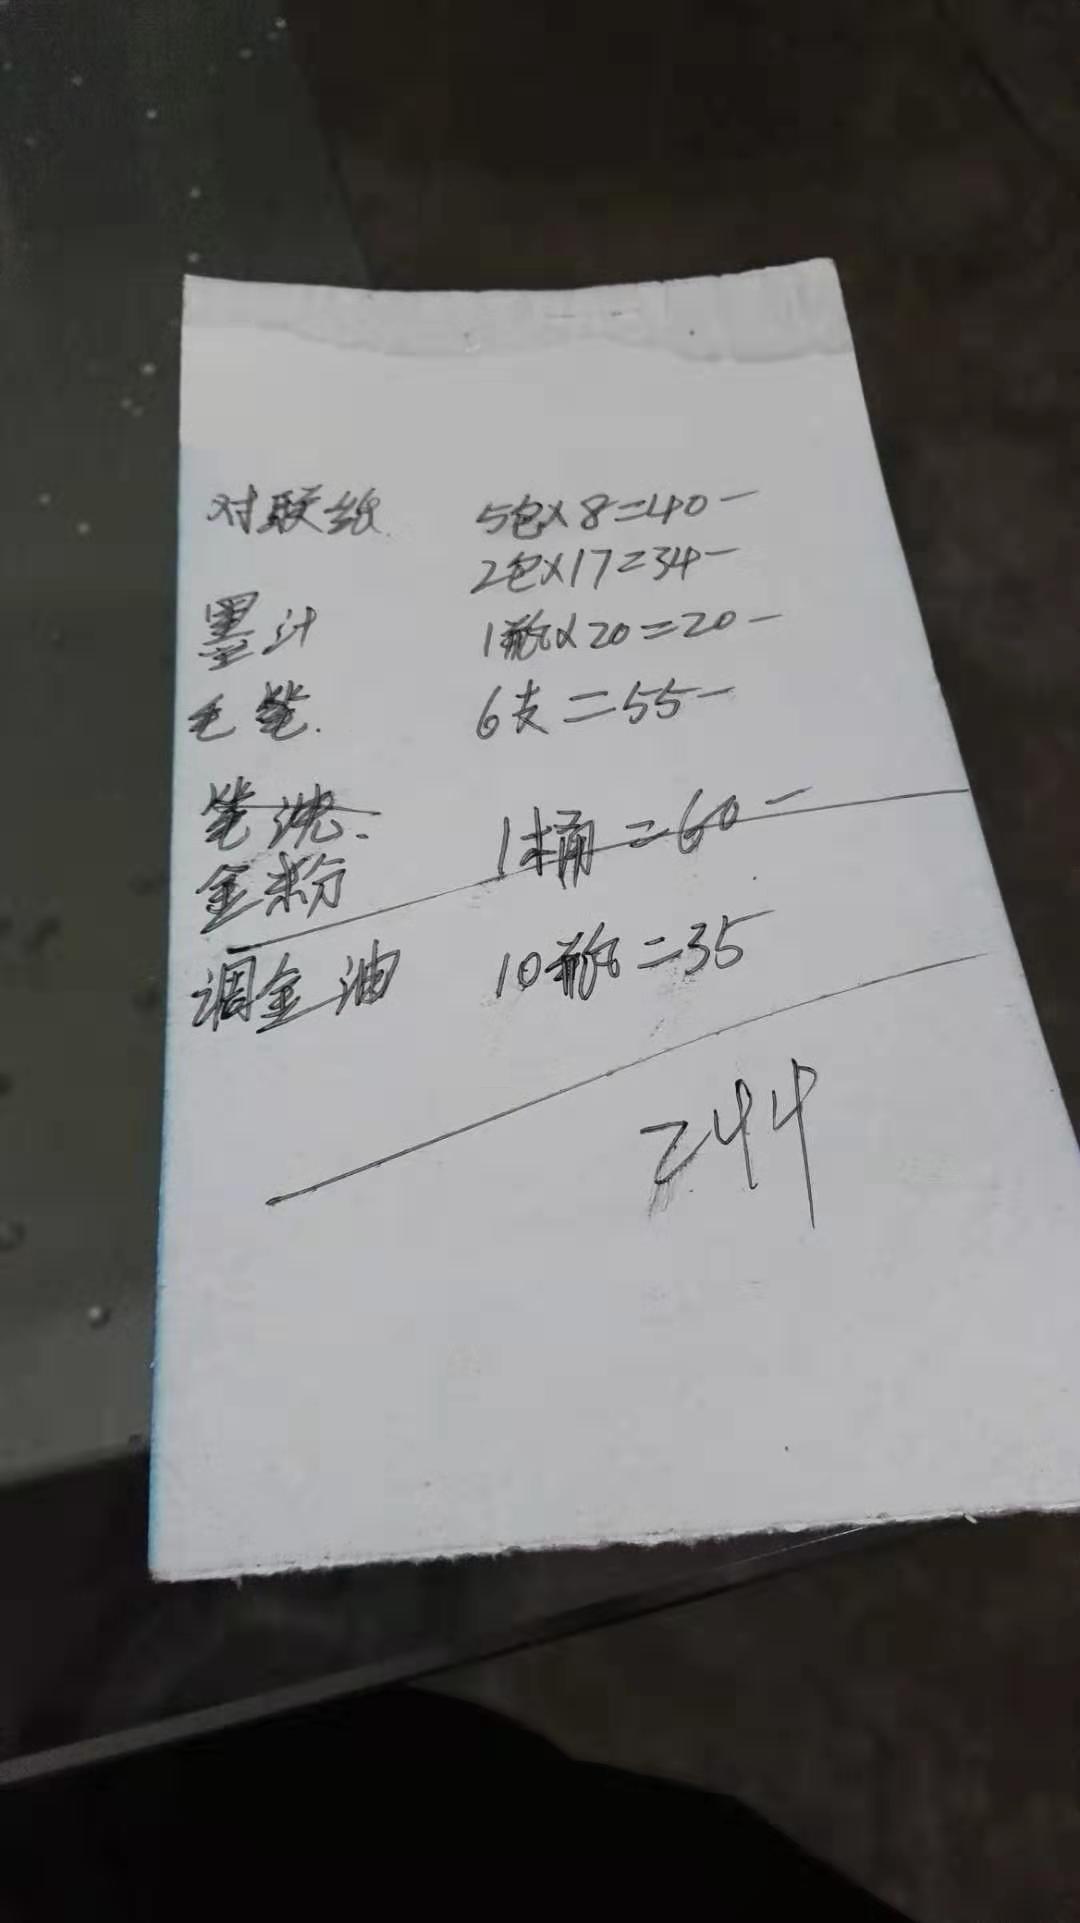 对联纸 5包×8=40-
2包×17=34-
墨汁 1瓶×20=20-
毛笔. 6支=55-
笔洗
金粉 1桶=60-
调金油 10瓶=35
244